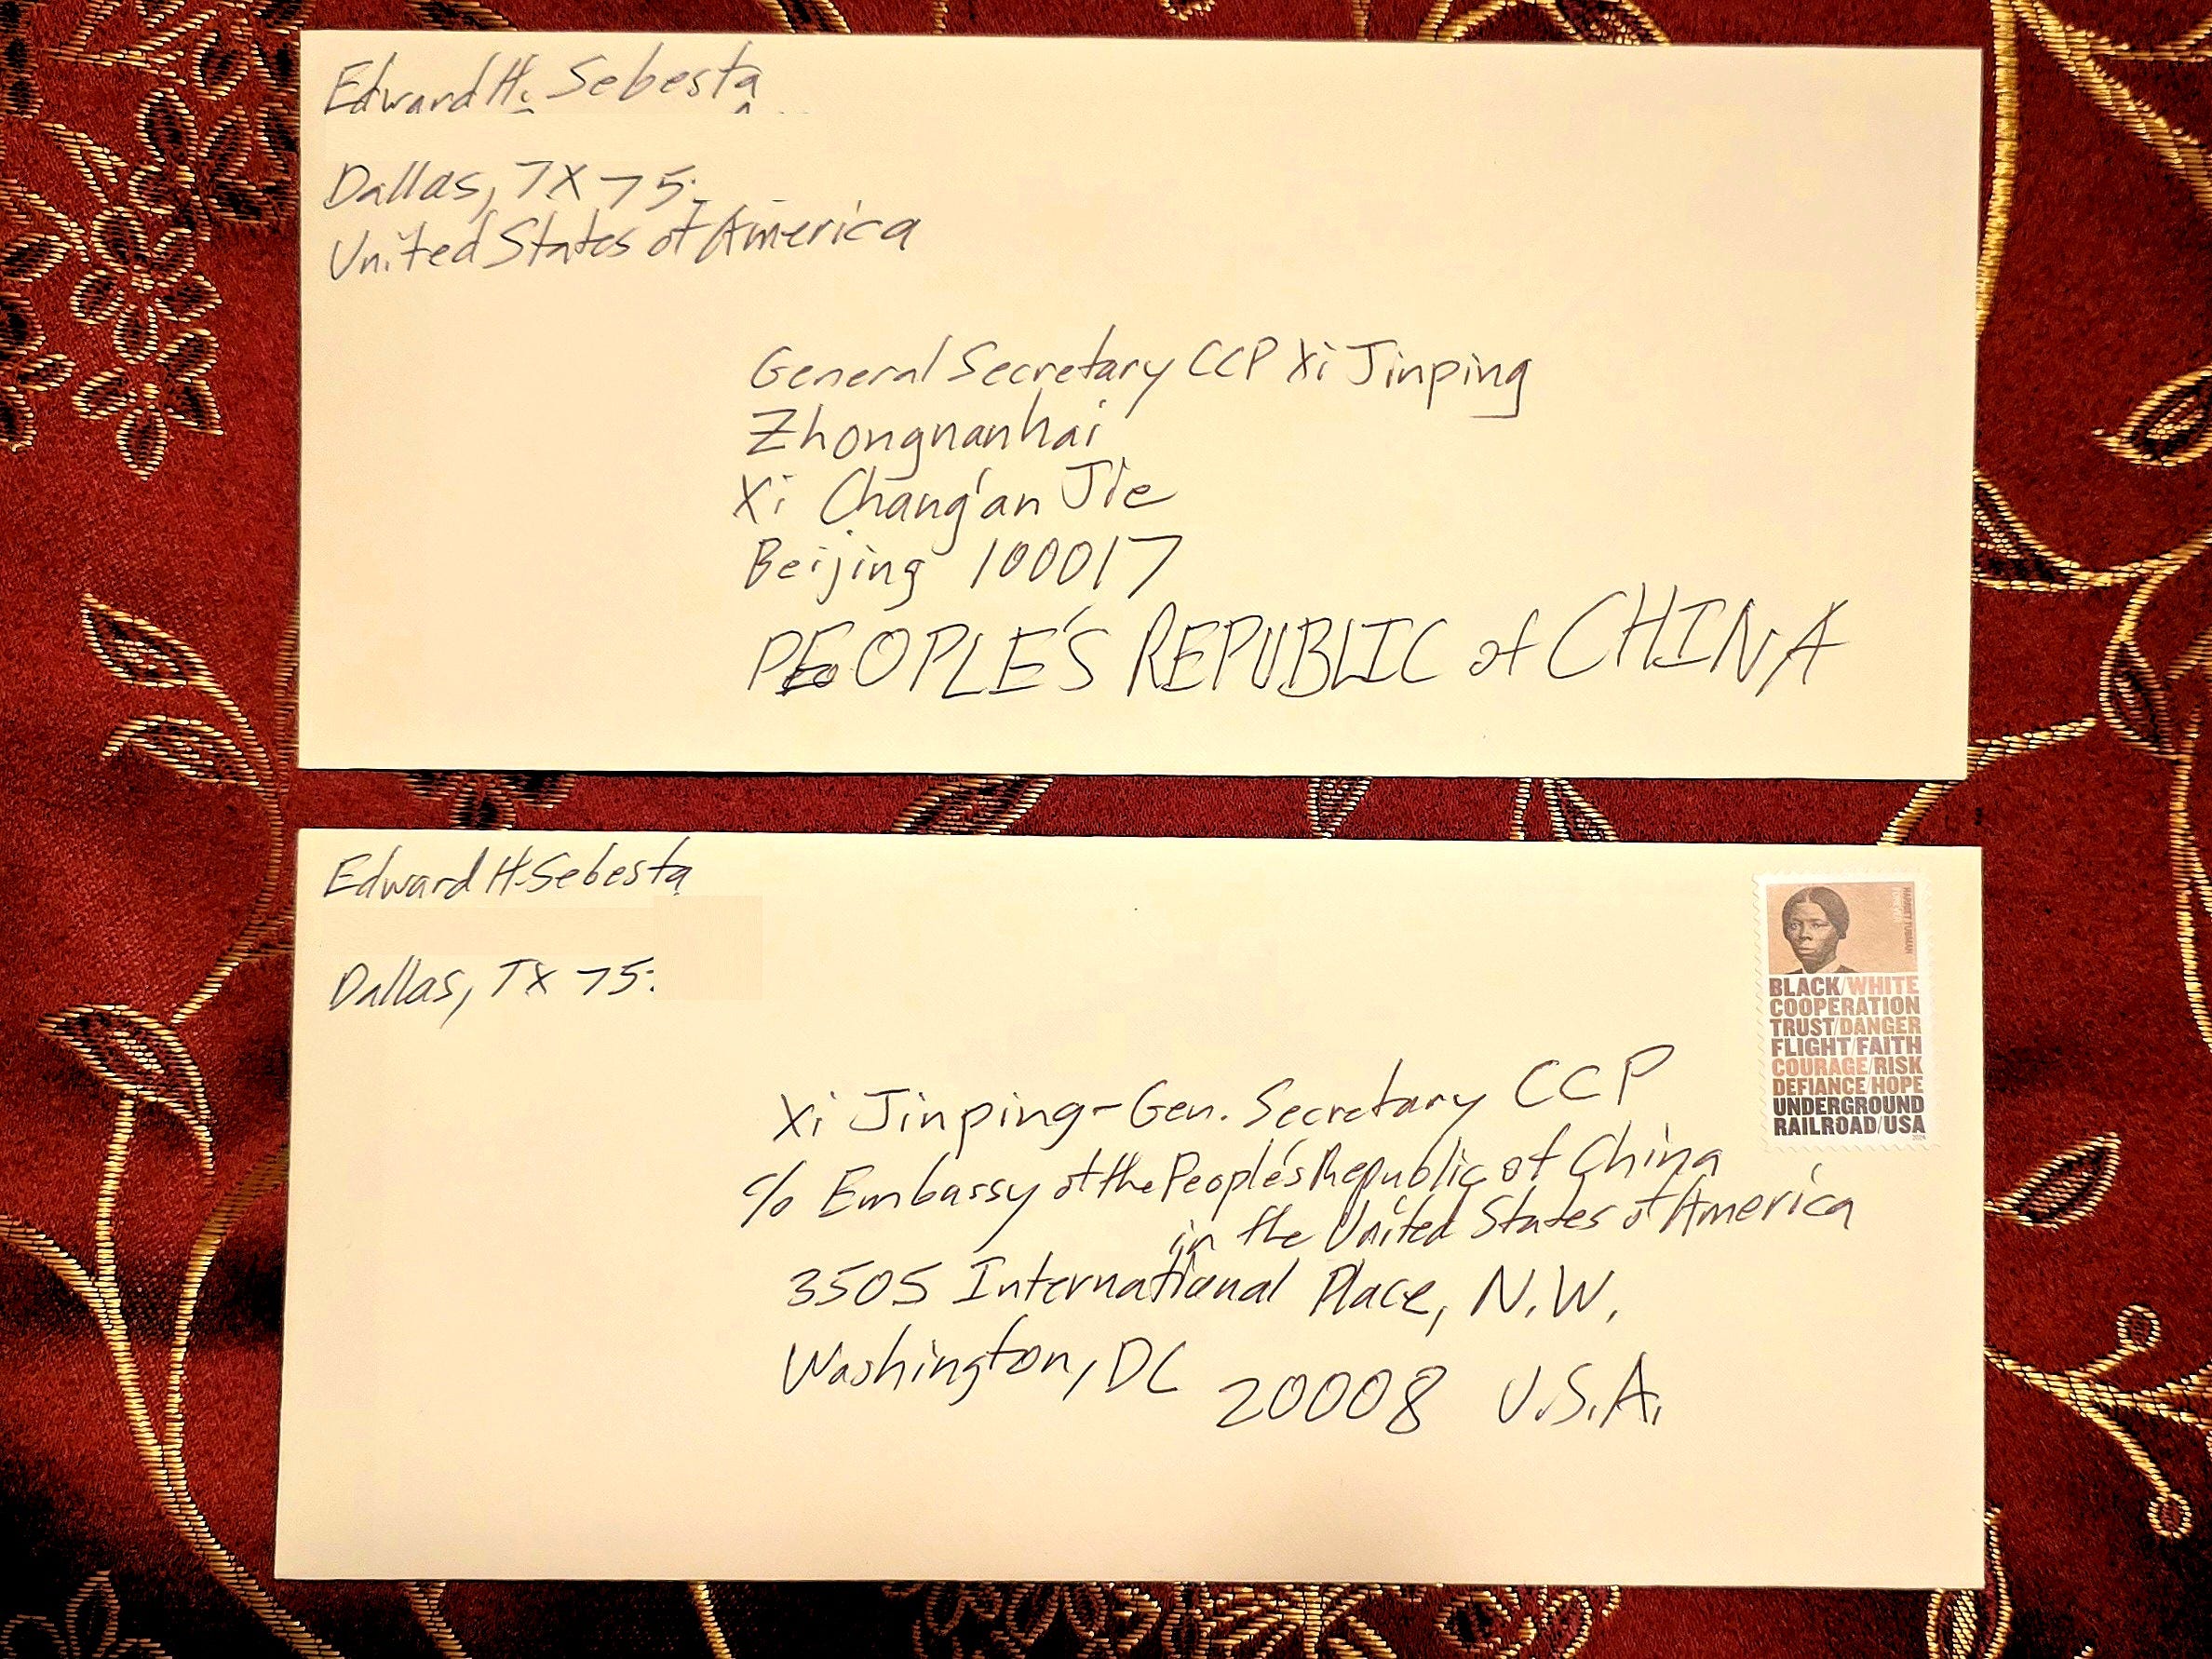 Edward H. Sebesta
Dallas, TX 75
United States of America
General Secretary CCP Xi Jinping
Zhongnanhai
Xi Chang'an Jie
Beijing 100017
PEOPLE'S REPUBLIC of CHINA
Edward H. Sebesta
Dallas, TX 75
HARRIET TUBMAN
BLACK/WHITE
COOPERATION
TRUST/DANGER
FLIGHT/FAITH
COURAGE/RISK
DEFIANCE/HOPE
UNDERGROUND
RAILROAD/USA
2024
Xi Jinping - Gen. Secretary CCP
c/o Embassy of the People's Republic of China
in the United States of America
3505 International Place, N.W.
Washington, DC 20008 U.S.A.